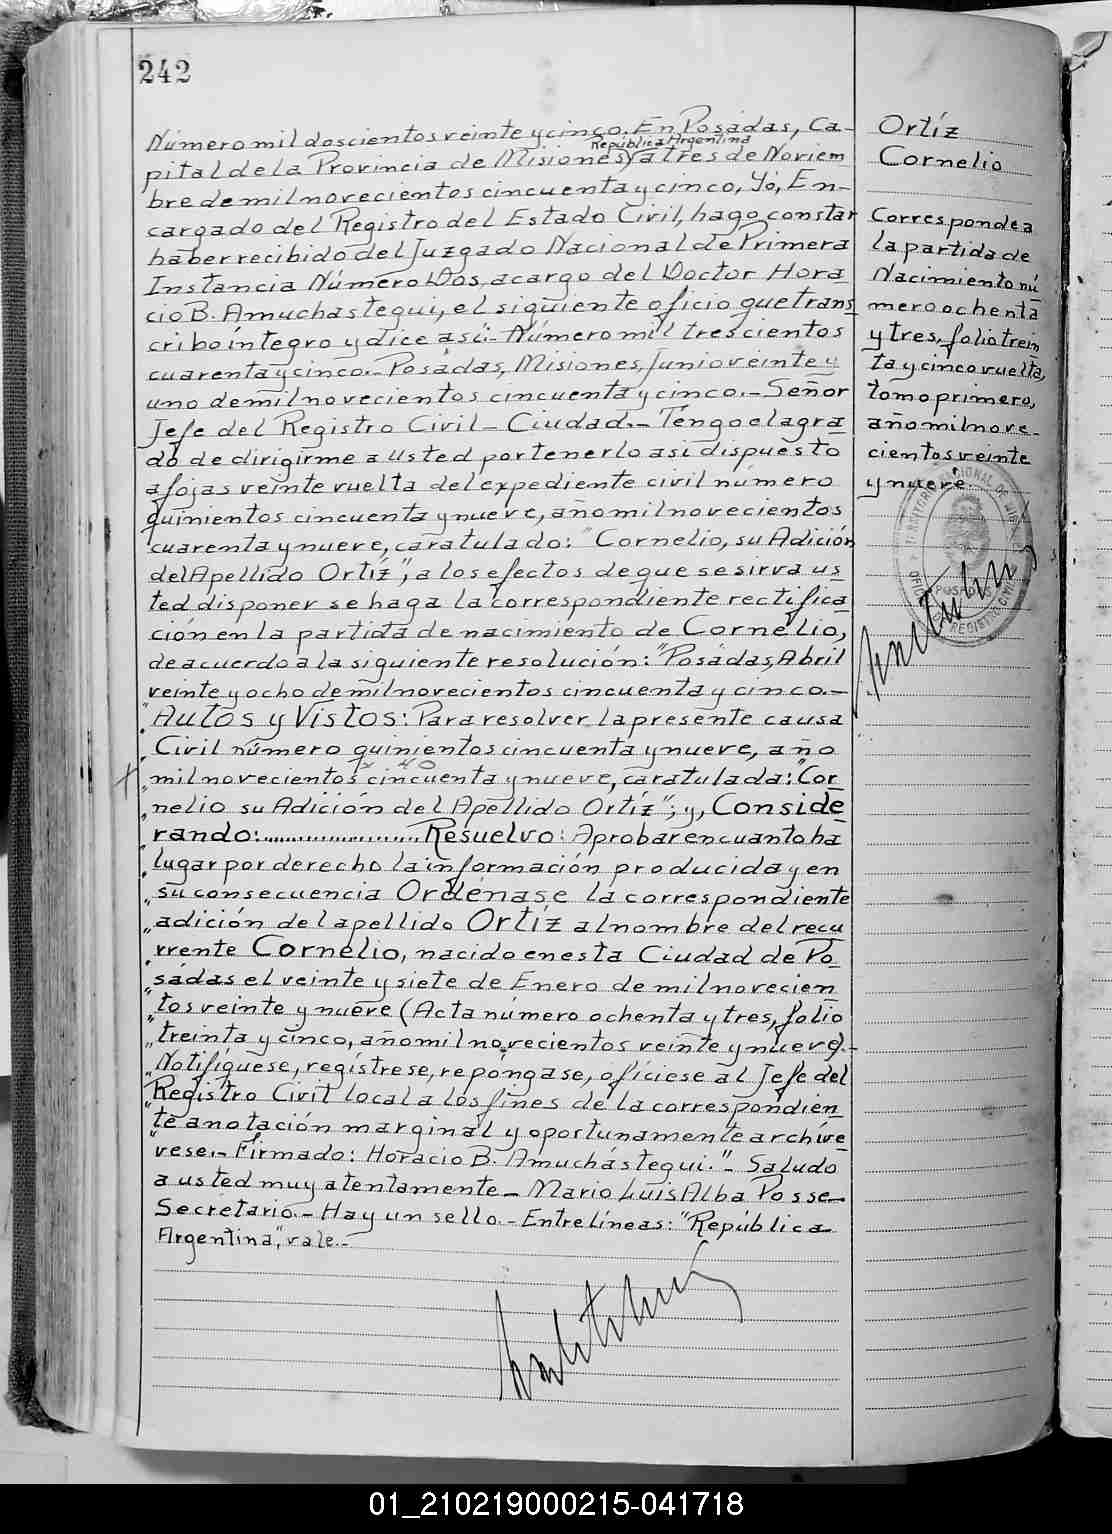 242
Número mil doscientos veinte y cinco. En Posadas, Ca-
República Argentina
pital de la Provincia de Misiones, a tres de Noviem
bre de mil novecientos cincuenta y cinco, Yó, En-
cargado del Registro del Estado Civil, hago constar
haber recibido del Juzgado Nacional de Primera
Instancia Número Dos, a cargo del Doctor Hora
cio B. Amuchastegui, el siguiente oficio que trans
cribo íntegro y dice así:- Número mil trescientos
cuarenta y cinco.- Posadas, Misiones, Junio veinte y
uno de mil novecientos cincuenta y cinco.- Señor
Jefe del Registro Civil- Ciudad.- Tengo el agra
do de dirigirme a usted por tenerlo así dispuesto
a fojas veinte vuelta del expediente civil número
quinientos cincuenta y nueve, año mil novecientos
cuarenta y nueve, caratulado: "Cornelio, su Adición
del Apellido Ortíz", a los efectos de que se sirva us
ted disponer se haga la correspondiente rectifica
ción en la partida de nacimiento de Cornelio,
de acuerdo a la siguiente resolución: "Posadas, Abril
veinte y ocho de mil novecientos cincuenta y cinco.-
"Autos y Vistos: Para resolver la presente causa
"Civil número quinientos cincuenta y nueve, año
"mil novecientos cincuenta y nueve, caratulada: "Cor
"nelio su Adición del Apellido Ortíz"; y, Conside
rando:..................... Resuelvo: Aprobar en cuanto ha
"lugar por derecho la información producida y en
"su consecuencia Ordénase la correspondiente
"adición del apellido Ortíz al nombre del recu
"rrente Cornelio, nacido en esta Ciudad de Po
"sadas el veinte y siete de Enero de mil novecien
"tos veinte y nueve (Acta número ochenta y tres, folio
"treinta y cinco, año mil novecientos veinte y nueve).-
"Notifíquese, regístrese, repóngase, ofíciese al Jefe del
"Registro Civil local a los fines de la correspondien
"te anotación marginal y oportunamente archíve
"vese.- Firmado: Horacio B. Amuchástegui."- Saludo
a usted muy atentamente- Mario Luis Alba Posse-
Secretario.- Hay un sello.- Entre líneas: "República
Argentina", vale.-
Ortíz
Cornelio
Corresponde a
la partida de
Nacimiento nú
mero ochenta
y tres, folio trein
ta y cinco vuelta,
tomo primero,
año mil nove-
cientos veinte
y nueve.
POSADAS
01_210219000215-041718